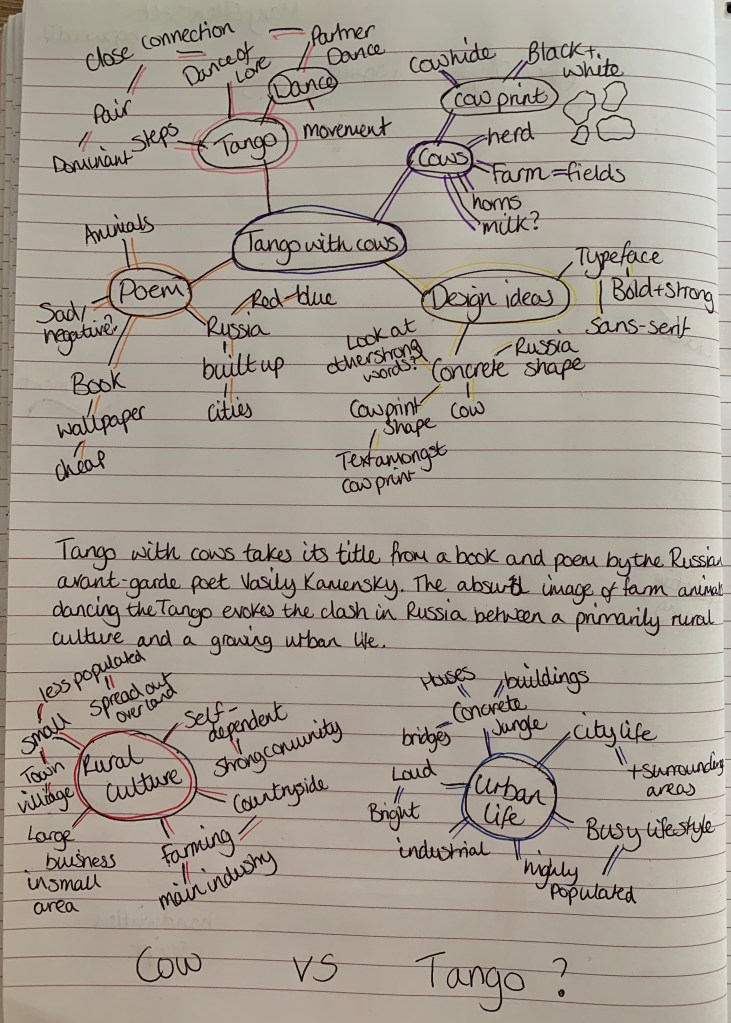 close connection
Dance of
love
Partner
Dance
Dance
Pair
steps
Dominant
Tango
movement
Cowhide
Black +
white
cow print
herd
Cows
Farm = fields
horns
milk?
Tango with cows
Animals
Poem
Sad/
negative?
Red - blue
Russia
built up
cities
Book
wallpaper
cheap
Typeface
Design ideas
Bold + strong
Sans-serif
Look at
other strong
words?
Russia
Concrete shape
Cow print
shape
cow
Text amongst
cow print
Tango with cows takes its title from a book and poem by the Russian
avant-garde poet Vasily Kamensky. The absurd image of farm animals
dancing the Tango evokes the clash in Russia between a primarily rural
culture and a growing urban life.
less populated
Spread out
over land
small
Town
village
Rural
Culture
Self-
dependent
strong comunity
Countryside
Farming
main industry
Large
business
in small
area
Houses
buildings
Concrete
Jungle
bridges
City life
+ surrounding
areas
Loud
Bright
Urban
life
Busy lifestyle
industrial
highly
populated
Cow VS Tango?